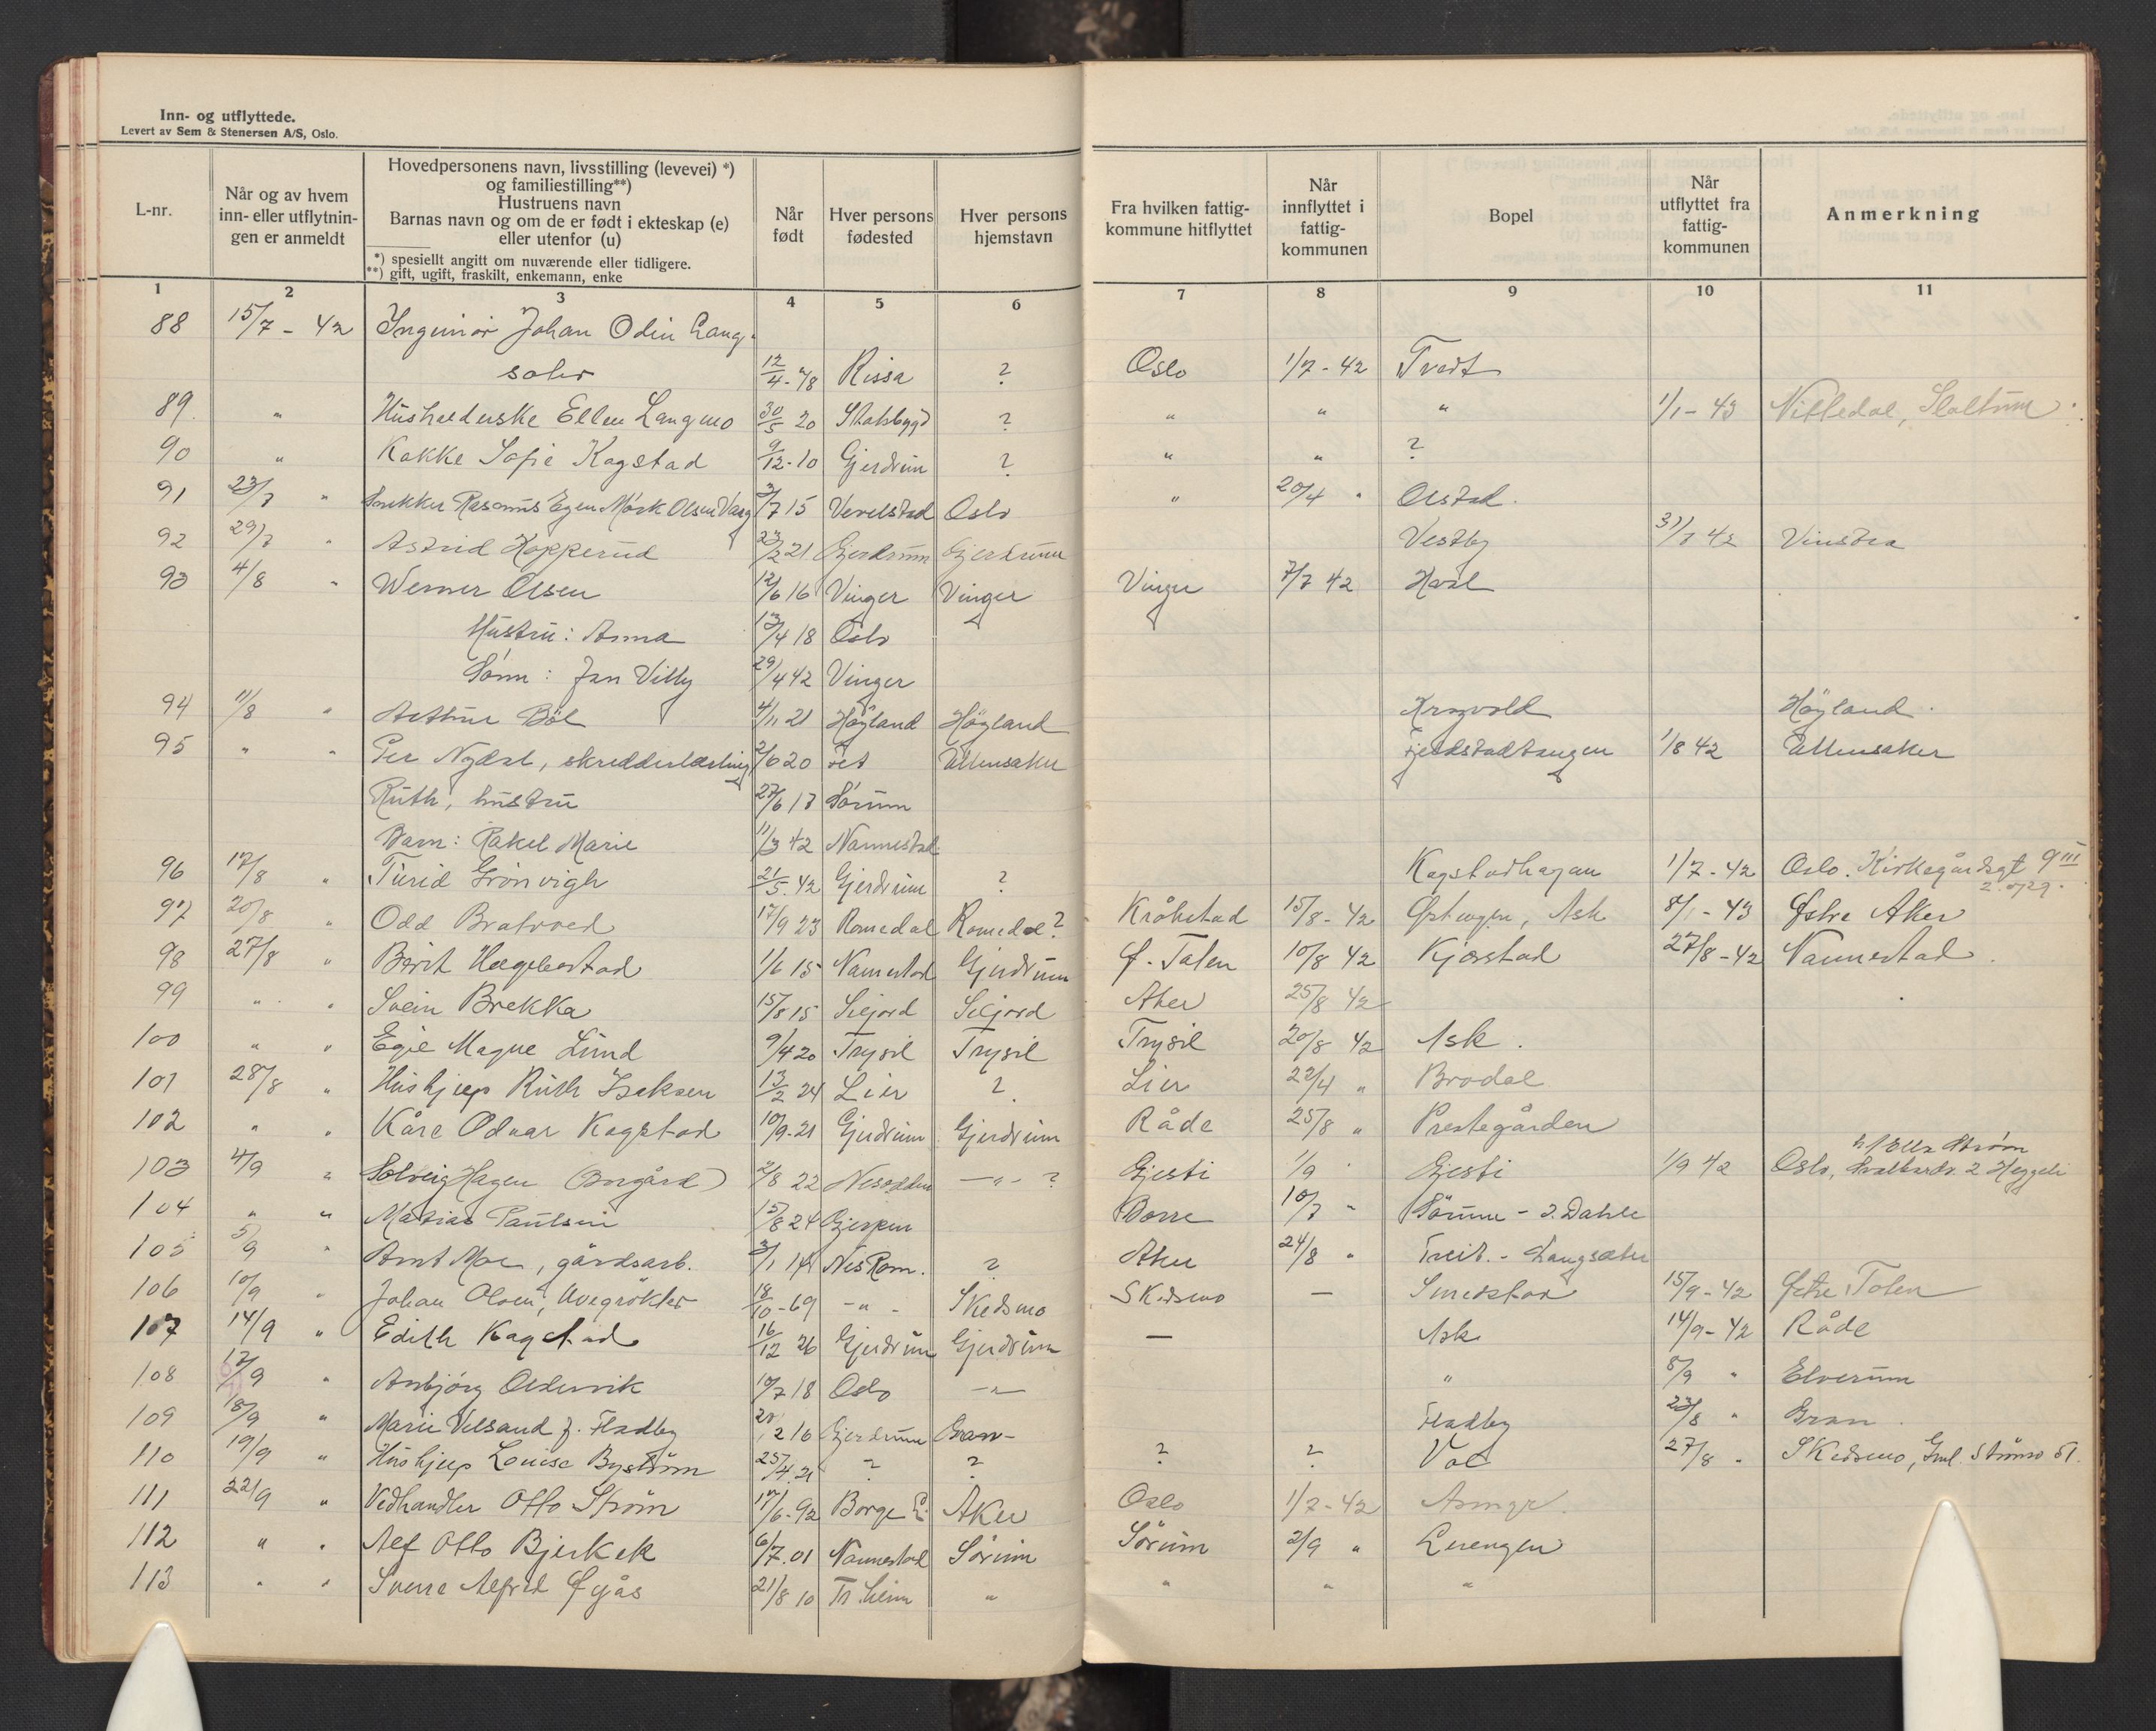 Inn- og utflyttede.
Levert av Sem & Stenersen A/S, Oslo.
L-nr.
Når og av hvem inn- eller utflytnin- gen er anmeldt
Hovedpersonens navn, livsstilling (levevei) *)
og familiestilling**)
Hustruens navn
Barnas navn og om de er født i ekteskap (e)
eller utenfor (u)
*) spesiellt angitt om nuværende eller tidligere.
**) gift, ugift, fraskilt, enkemann, enke
Når født
Hver persons fødested
Hver persons hjemstavn
Fra hvilken fattig- kommune hitflyttet
Når innflyttet i fattig- kommunen
Bopel
Når utflyttet fra fattig- kommunen
Anmerkning
1 2 3 4 5 6 7 8 9 10 11
88 15/7 - 42 Ingeniør Johan Odin Lang-
12/4-78 Rissa ? Oslo 1/7-42 Tveit
89. " Ellen Langmo 30/5 20 Stadsbygd ? " " " 1/1-43 Nittedal,
90 " Kokke Sofie Kogstad 9/12-10 Gjerdrum ? " " ?
91 23/7 " Snekker Rasmus Mörk Olsen 3/7 15 Oslo " 20/4 " Olstad.
92 29/7 " Astrid Kopperud 23/2 21 Gjerdrum Gjerdrum Vestby 31/7 42 Vinstra
93 4/8 " Werner Olsen 12/6 16 Vinger Vinger Vinger 7/7 42
Hustru: Anna 13/4 18 Oslo
Sönn: Jan Villy 29/4 42 Vinger
94 11/8 " Arthur 4/11 21 Höyland Höyland Krogvold Höyland.
95 " " Per skredderlærling 2/6 20 Fet Ullensaker Fjeldstadtangen 1/8 42 Ullensaker
Ruth, hustru 27/6 17 Sörum
Barn: Rakel Marie 11/3 42 Nannestad
96 17/8 " Turid Grönvigh 21/5.42 Gjerdrum ? Kogstadhagan 1/7-42 Oslo. Kirkegårdsgt 9III
97 20/8 " Odd Bratvoed 17/9 23 Romedal Romedal? Kråkstad 15/8-42 Østengen, Ask 8/1-43 Østre Aker
98 27/8 " Berit Hægebostad 1/6 15 Nannestad Gjerdrum Ø. Toten 10/8 42 Kjørstad 27/8-42 Nannestad.
99 " " Svein Brekka 15/8 15 Seljord Seljord Aker 25/8 42
100 " " Egil Magne Lund 9/4 20 Trysil Trysil Trysil 20/8 42 Ask.
101 28/8 " Hushjelp Ruth Isaksen 13/2 24 Lier ? Lier 22/4 " Brodal
102 " " Kåre Odvar Kogstad 10/9-21 Gjerdrum Gjerdrum Råde 25/8 " Prestegården
103 4/9 " Solveig Hagen (Borgård) 2/8 22 Nesodden -"- ? Gjesti 1/9 " Gjesti 1/9 42 Oslo, 2 Heggeli
104 " " Matias Paulsen 15/8 24 Gjerpen Borre 10/7 " - J. Dahle
105 5/9 " Arnt Moe, gårdsarb. 3/1 14 Nes Rom. ? Aker 24/8 " Tveit. - Langsæter
106 10/9 " Johan Olsen, 18/10-69 -"- Skedsmo Skedsmo — Smedstad 15/9-42 Østre Toten
107 14/9 " Edith Kogstad 16/12 26 Gjerdrum Gjerdrum — Ask 14/9-42 Råde
108 17/9 " Asbjörg Oldervik 10/7 18 Oslo -"- " 8/9 " Elverum
109 18/9 " Marie Velsand f. Fladby Gjerdrum Gran- Fladby 23/8 " Gran.
110 19/9 " Hushjelp Louise Byström 25/4.21 ? ? ? ? Vol 27/8 " Skedsmo,
111 22/9 " Vedhandler Otto Ström 17/6-92 Borge Aker Oslo 1/7-42
112 " " Alf Otto Bjerkek 6/7.01 Nannestad Sörum Sörum 2/9 " Lerengen
113 " " Sverre Alfred Øyås 21/8 10 Tr.heim " " " "